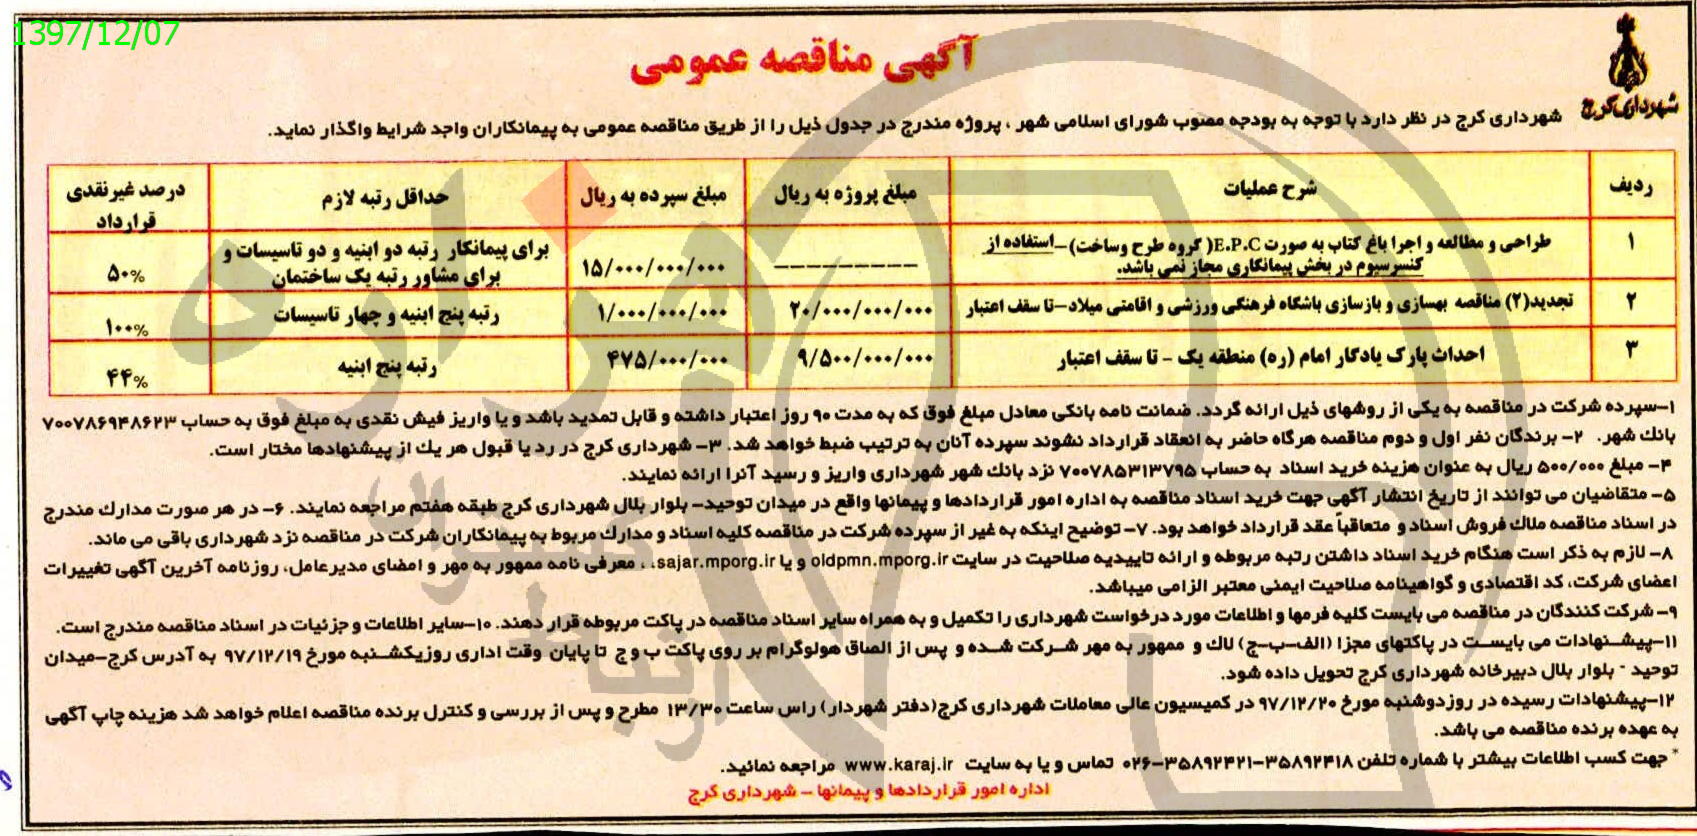 1397/12/07
آگهی مناقصه عمومی
شهرداری کرج
شهرداری کرج در نظر دارد با توجه به بودجه مصوب شورای اسلامی شهر ، پروژه مندرج در جدول ذیل را از طریق مناقصه عمومی به پیمانکاران واجد شرایط واگذار نماید.
ردیف شرح عملیات مبلغ پروژه به ریال مبلغ سپرده به ریال حداقل رتبه لازم درصد غیرنقدی
قرارداد
۱ طراحی و مطالعه و اجرا باغ کتاب به صورت E.P.C( گروه طرح وساخت)–استفاده از
کنسرسیوم در بخش پیمانکاری مجاز نمی باشد.
---------- ۱۵/۰۰۰/۰۰۰/۰۰۰ برای پیمانکار رتبه دو ابنیه و دو تاسیسات و
برای مشاور رتبه یک ساختمان
۵۰%
۲ تجدید(۲) مناقصه بهسازی و بازسازی باشگاه فرهنگی ورزشی و اقامتی میلاد–تا سقف اعتبار ۲۰/۰۰۰/۰۰۰/۰۰۰ ۱/۰۰۰/۰۰۰/۰۰۰ رتبه پنج ابنیه و چهار تاسیسات ۱۰۰%
۳ احداث پارک یادگار امام (ره) منطقه یک - تا سقف اعتبار ۹/۵۰۰/۰۰۰/۰۰۰ ۴۷۵/۰۰۰/۰۰۰ رتبه پنج ابنیه ۴۴%
۱–سپرده شرکت در مناقصه به یکی از روشهای ذیل ارائه گردد. ضمانت نامه بانکی معادل مبلغ فوق که به مدت ۹۰ روز اعتبار داشته و قابل تمدید باشد و یا واریز فیش نقدی به مبلغ فوق به حساب ۷۰۰۷۸۶۹۴۸۶۲۳
بانك شهر. ۲- برندگان نفر اول و دوم مناقصه هرگاه حاضر به انعقاد قرارداد نشوند سپرده آنان به ترتیب ضبط خواهد شد. ۳- شهرداری کرج در رد یا قبول هر یك از پیشنهادها مختار است.
۴- مبلغ ۵۰۰/۰۰۰ ریال به عنوان هزینه خرید اسناد به حساب ۷۰۰۷۸۵۳۱۳۷۹۵ نزد بانك شهر شهرداری واریز و رسید آنرا ارائه نمایند.
۵- متقاضیان می توانند از تاریخ انتشار آگهی جهت خرید اسناد مناقصه به اداره امور قراردادها و پیمانها واقع در میدان توحید– بلوار بلال شهرداری کرج طبقه هفتم مراجعه نمایند. ۶- در هر صورت مدارك مندرج
در اسناد مناقصه ملاك فروش اسناد و متعاقباً عقد قرارداد خواهد بود. ۷- توضیح اینکه به غیر از سپرده شرکت در مناقصه کلیه اسناد و مدارك مربوط به پیمانکاران شرکت در مناقصه نزد شهرداری باقی می ماند.
۸- لازم به ذکر است هنگام خرید اسناد داشتن رتبه مربوطه و ارائه تاییدیه صلاحیت در سایت oldpmn.mporg.ir و یا sajar.mporg.ir، ، معرفی نامه ممهور به مهر و امضای مدیرعامل، روزنامه آخرین آگهی تغییرات
اعضای شرکت، کد اقتصادی و گواهینامه صلاحیت ایمنی معتبر الزامی میباشد.
۹- شرکت کنندگان در مناقصه می بایست کلیه فرمها و اطلاعات مورد درخواست شهرداری را تکمیل و به همراه سایر اسناد مناقصه در پاکت مربوطه قرار دهند. ۱۰–سایر اطلاعات و جزئیات در اسناد مناقصه مندرج است.
۱۱–پیشنهادات می بایست در پاکتهای مجزا (الف-ب-ج) لاك و ممهور به مهر شرکت شده و پس از الصاق هولوگرام بر روی پاکت ب و ج تا پایان وقت اداری روزیکشنبه مورخ ۹۷/۱۲/۱۹ به آدرس کرج–میدان
توحید - بلوار بلال دبیرخانه شهرداری کرج تحویل داده شود.
۱۲–پیشنهادات رسیده در روزدوشنبه مورخ ۹۷/۱۲/۲۰ در کمیسیون عالی معاملات شهرداری کرج(دفتر شهردار) راس ساعت ۱۳/۳۰ مطرح و پس از بررسی و کنترل برنده مناقصه اعلام خواهد شد هزینه چاپ آگهی
به عهده برنده مناقصه می باشد.
* جهت کسب اطلاعات بیشتر با شماره تلفن ۳۵۸۹۲۴۱۸–۳۵۸۹۲۴۲۱–۰۲۶ تماس و یا به سایت www.karaj.ir مراجعه نمائید.
اداره امور قراردادها و پیمانها – شهرداری کرج